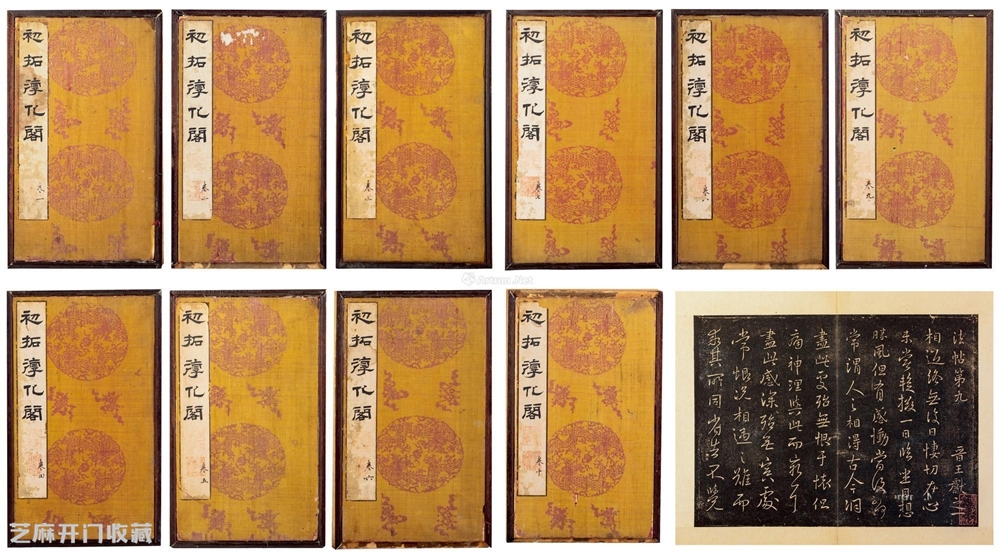 初拓淳化閣
卷一
初拓淳化閣
卷二
初拓淳化閣
卷三
初拓淳化閣
卷七
初拓淳化閣
卷八
初拓淳化閣
卷九
Artron.Net
初拓淳化閣
卷四
初拓淳化閣
卷五
初拓淳化閣
卷六
初拓淳化閣
卷十
法帖第九 晉王獻之
相過終無復日悽切在心
未嘗暫掇一日臨坐目想
勝風但有感慟當復如
常謂人之相得古今洞
盡此處殆無恨于懷但
痛神理與此而窮耳
盡此感深殆無冥處
常恨況相遇之難而
乖其所同省告不覺
芝麻开门收藏